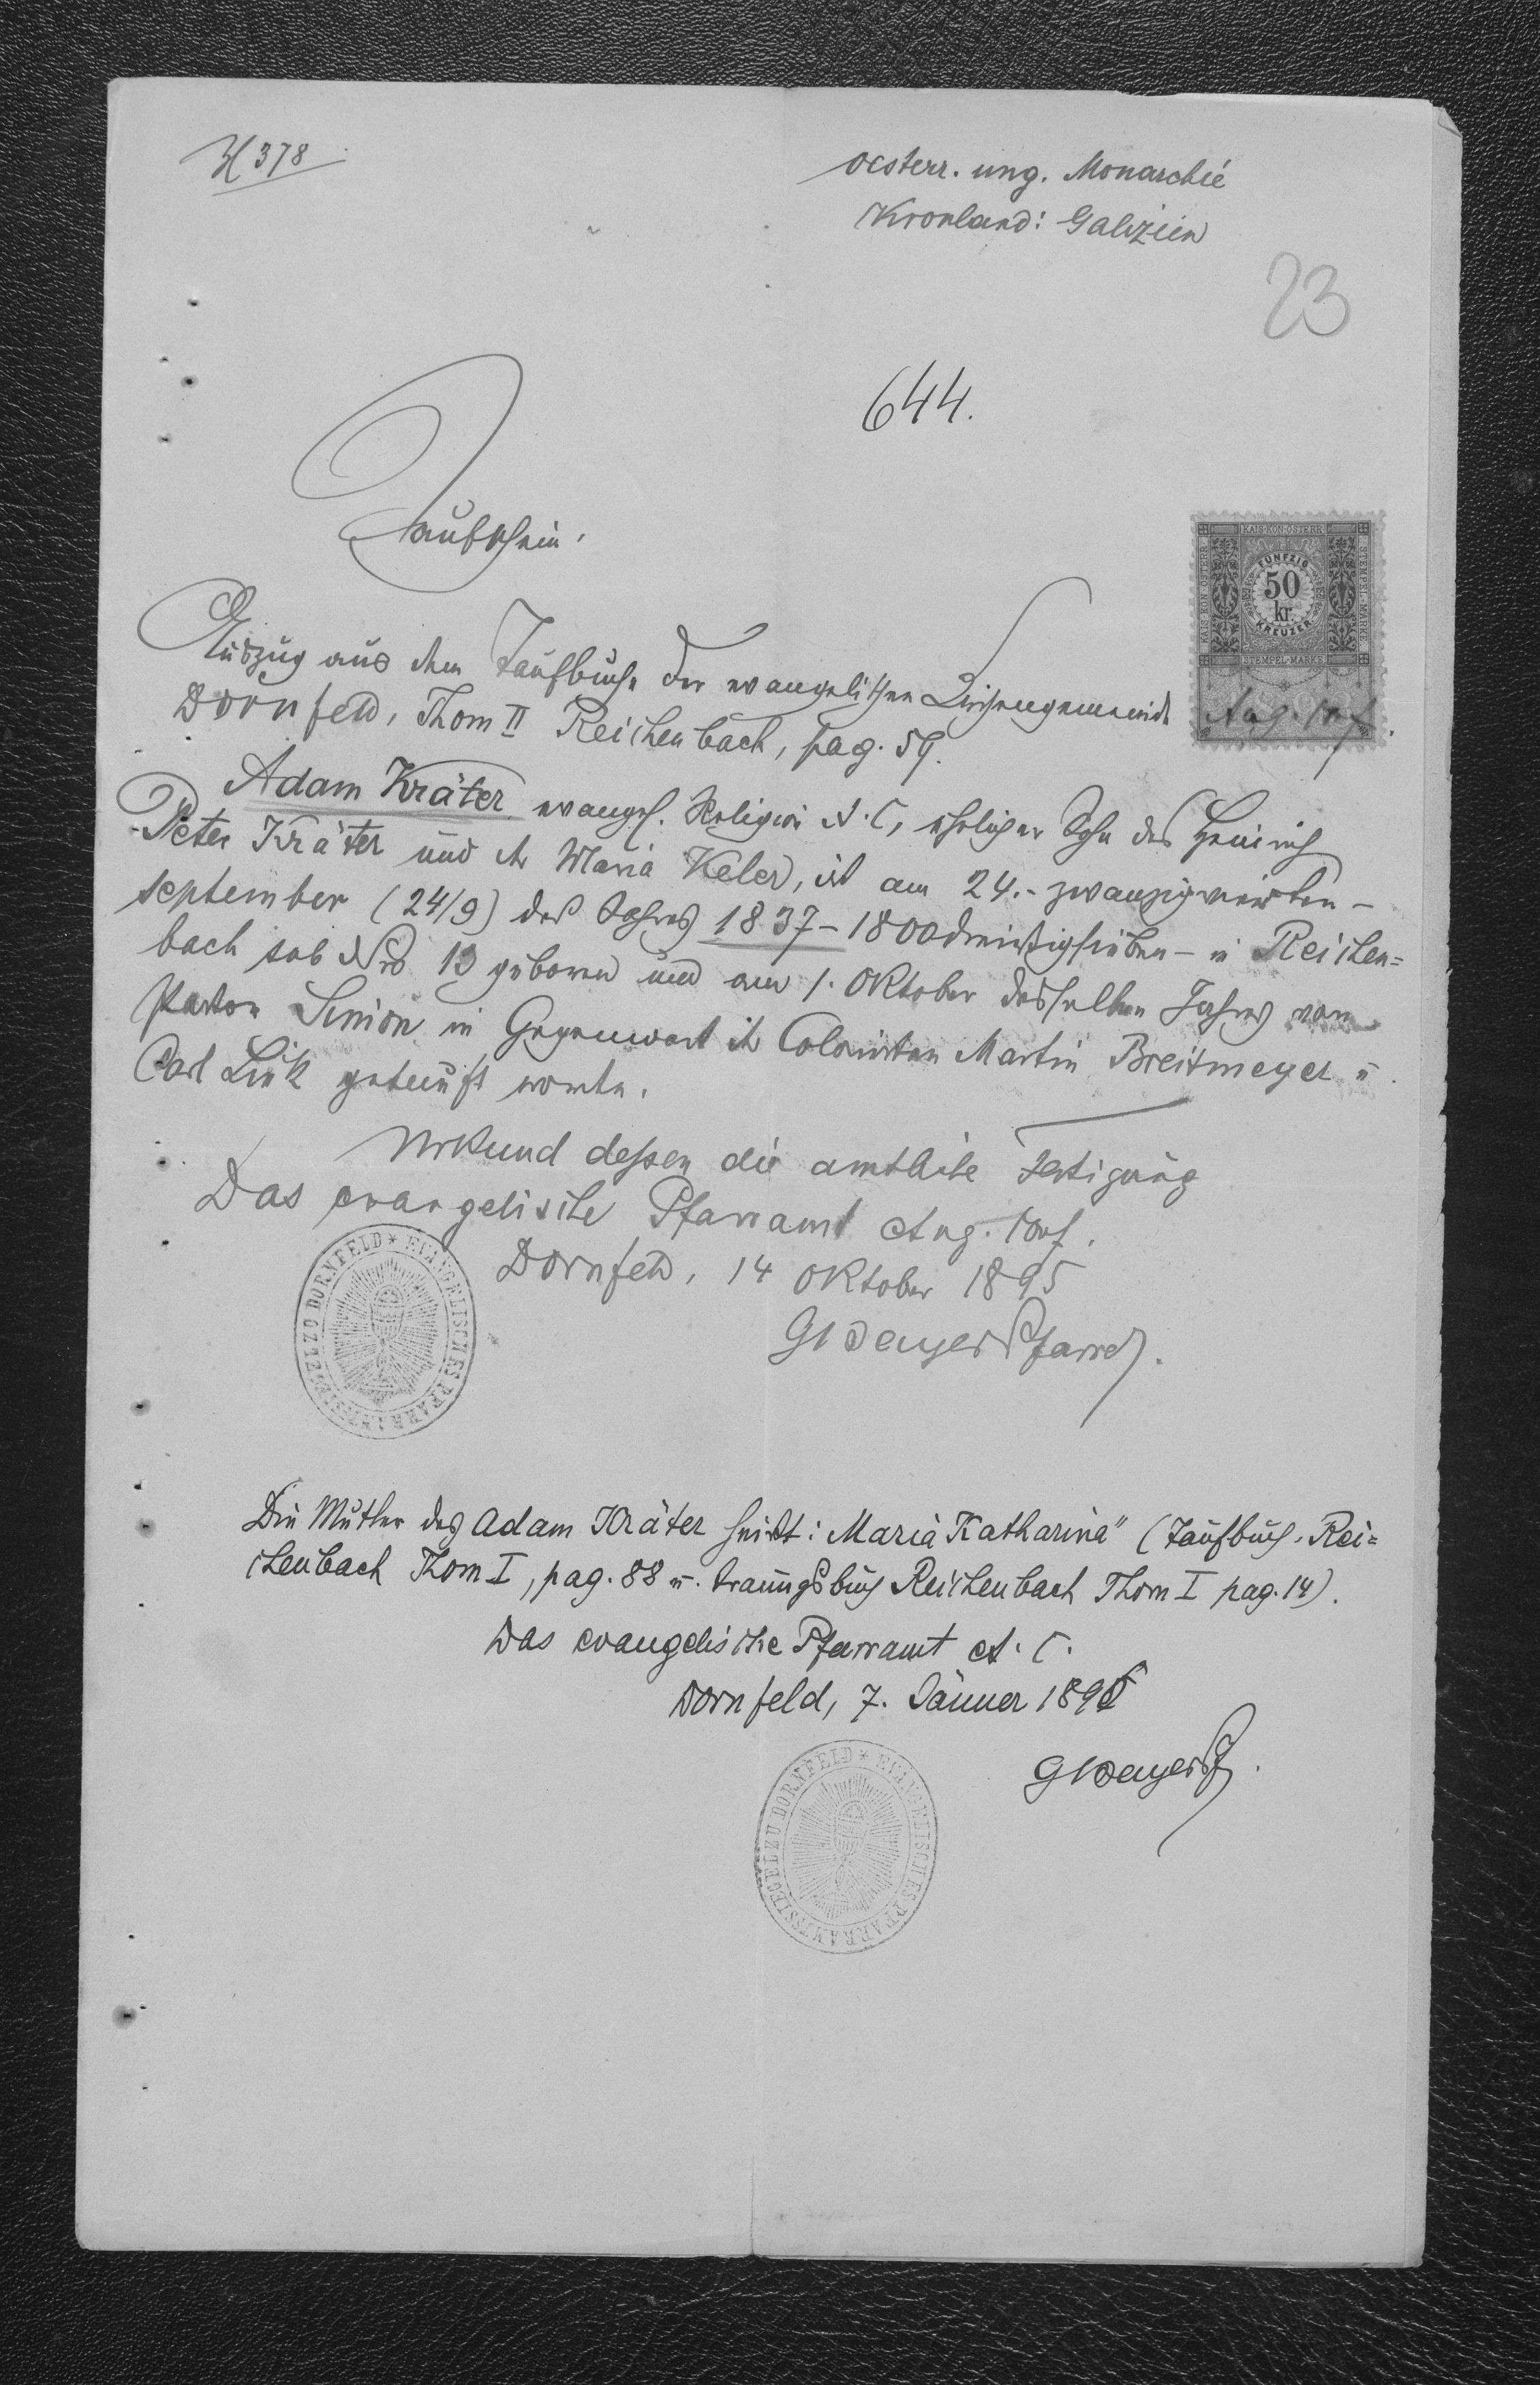 H 378
oesterr. ung. Monarchie
Kronland: Galizien
23
644.
Taufschein.
KAIS·KÖN·ÖSTERR·
STEMPEL-MARKE
FÜNFZIG
50
kr.
KREUZER
STEMPEL-MARKE
Aug. Conf.
Auszug aus dem Taufbuche der evangelischen Kirchengemeinde
Dornfeld, Thom II Reichenbach, pag. 59.
Adam Kräter evangel. Religion A. C, ehelicher Sohn des Heinrich
Peter Kräter und der Maria Keler, ist am 24.- zwanzigvierten -
September (24/9) des Jahres 1837 - 1800dreißigsieben - in Reichen=
bach sub Nro 13 geboren und am 1. Oktober desselben Jahres vom
Pastor Simon in Gegenwart der Colonisten Martin Breitmeyer u.
Carl Link getauft worden.
Urkund dessen die amtliche Fertigung
Das evangelische Pfarramt Aug. Conf.
Dornfeld, 14 Oktober 1895
Pfarrer.
EVANGELISCHES PFARRAMTSSIEGEL ZU DORNFELD *
Die Mutter des Adam Kräter heißt: Maria Katharina" (Taufbuch. Rei=
chenbach Thom I, pag. 88 u. Trauungsbuch Reichenbach Thom I pag. 14).
Das evangelische Pfarramt A. C.
Dornfeld, 7. Jänner 189
EVANGELISCHES PFARRAMTSSIEGEL ZU DORNFELD *